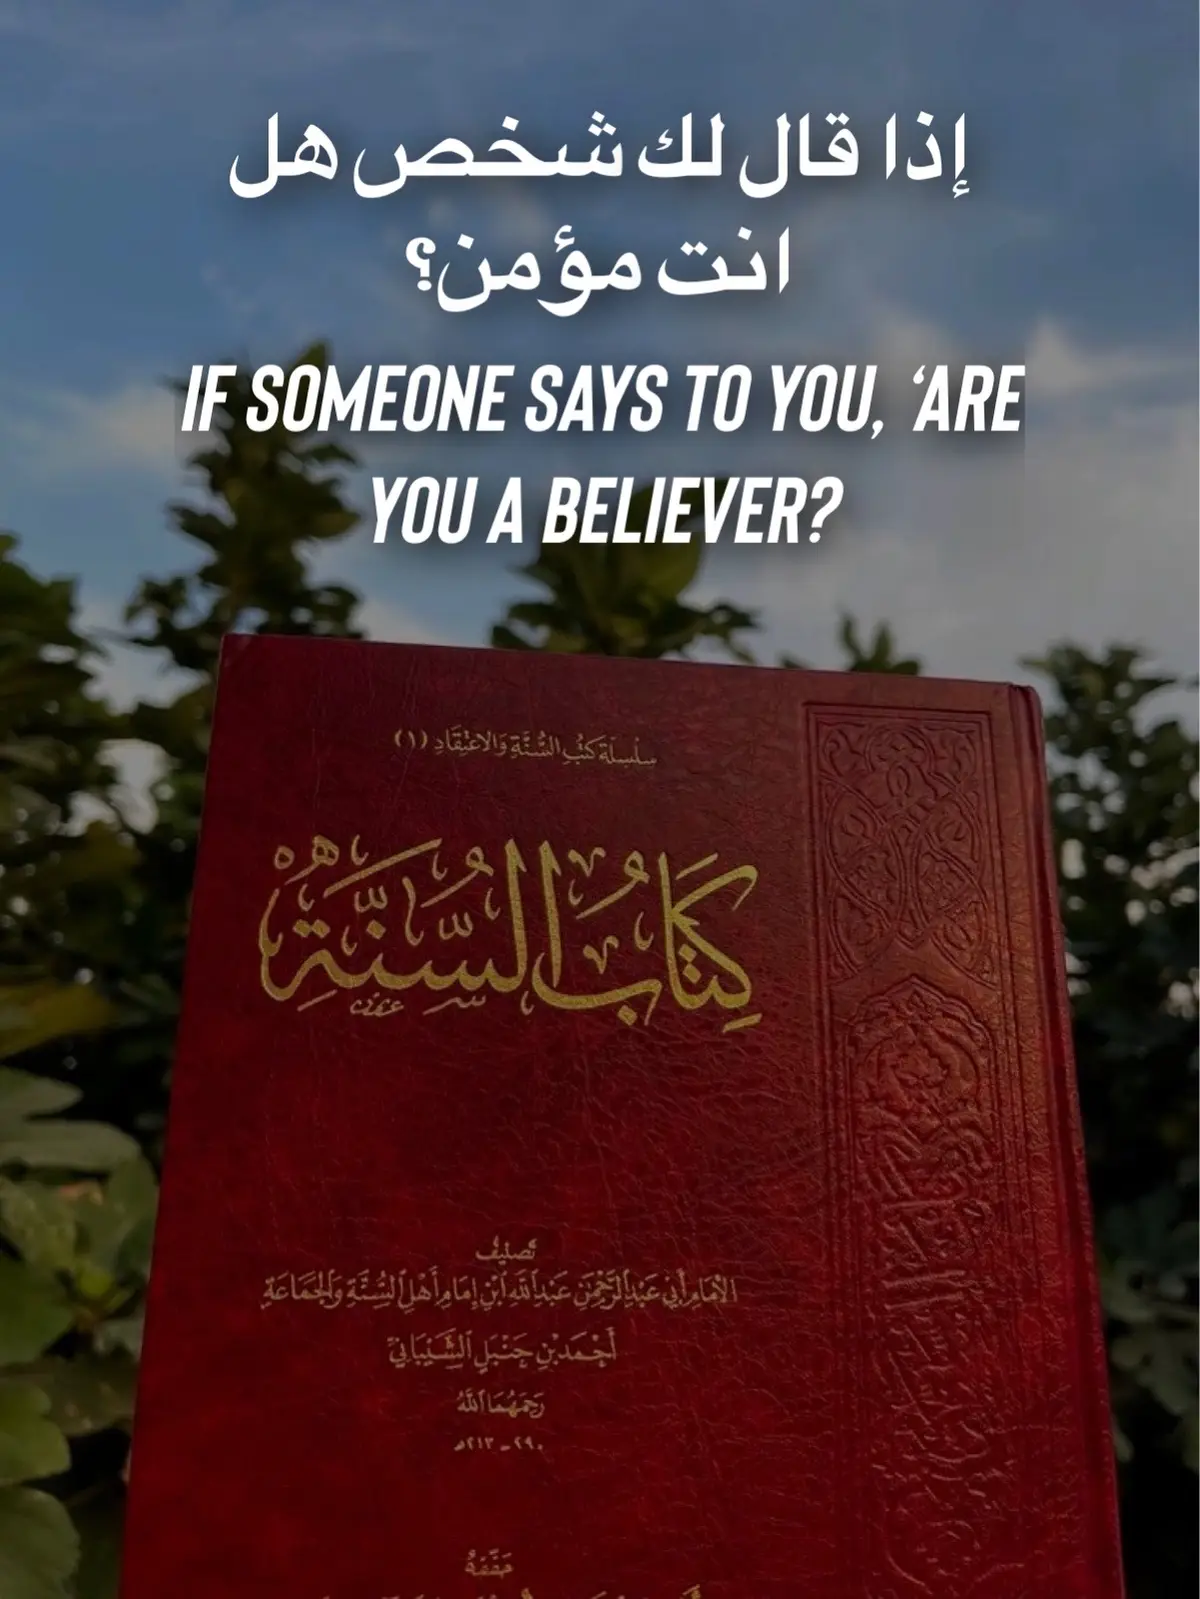 إذا قال لك شخص هل
انت مؤمن؟
IF SOMEONE SAYS TO YOU, ‘ARE
YOU A BELIEVER?
سلسلة كتب السنة والاعتقاد (١)
كتاب السنة
تصنيف
الإمام أبي عبد الرحمن عبد الله ابن إمام أهل السنة والجماعة
أحمد بن حنبل الشيباني
رحمهما الله
٢١٣ - ٢٩٠هـ
حققه